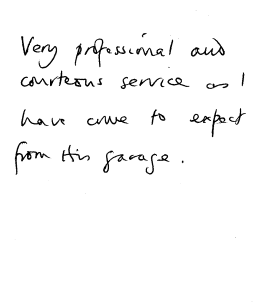 Very professional and
courteous service as I
have come to expect
from this garage.